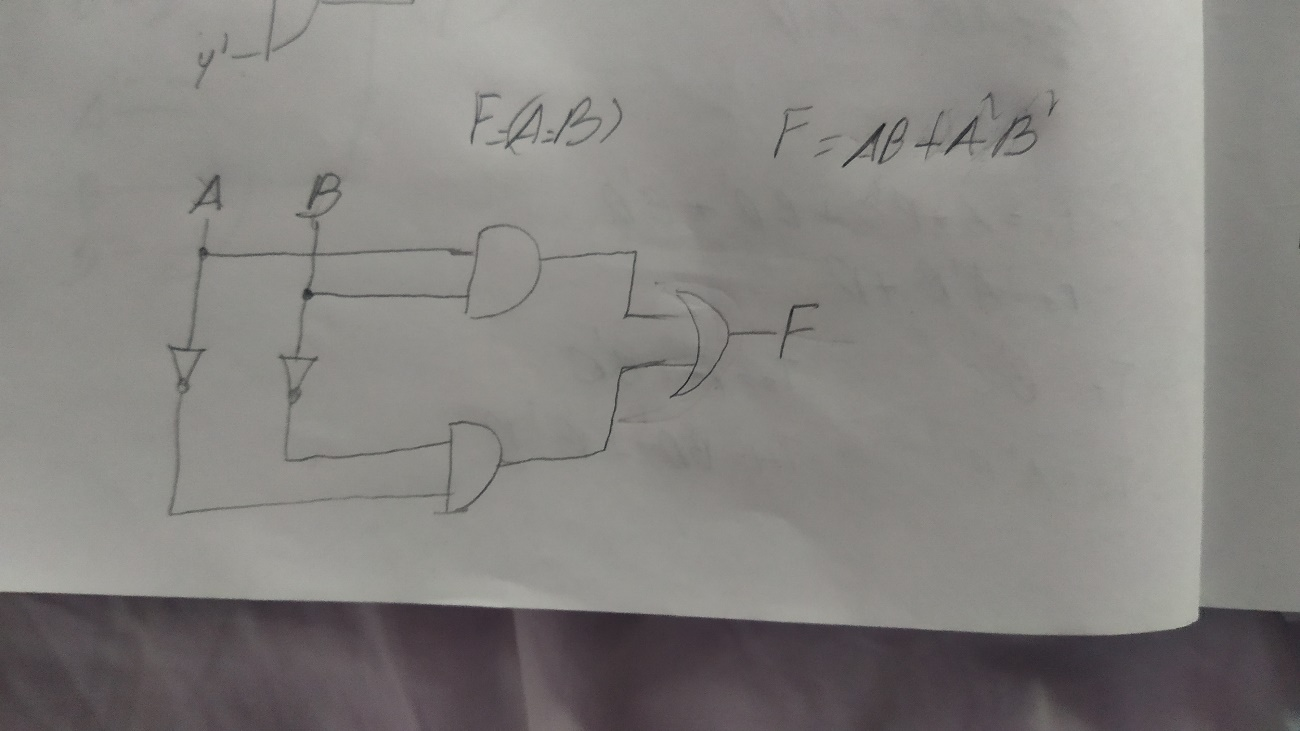 y'
F=(A=B)
F=AB+A'B'
A B
F